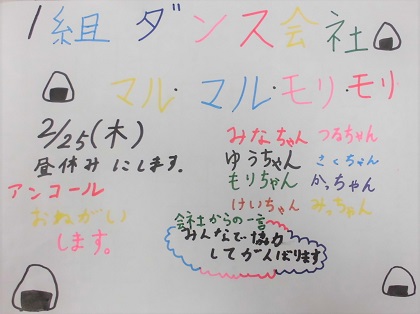 1組 ダンス会社
マル・マル・モリ・モリ
2/25(木)
昼休みにします。
アンコール
おねがい
します。
みなちゃん つるちゃん
ゆうちゃん さくちゃん
もりちゃん かっちゃん
けいちゃん みっちゃん
会社からの一言
みんなで協力
してがんばります